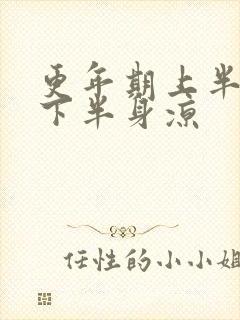 更年期上半
下半身凉
任性的小小姐